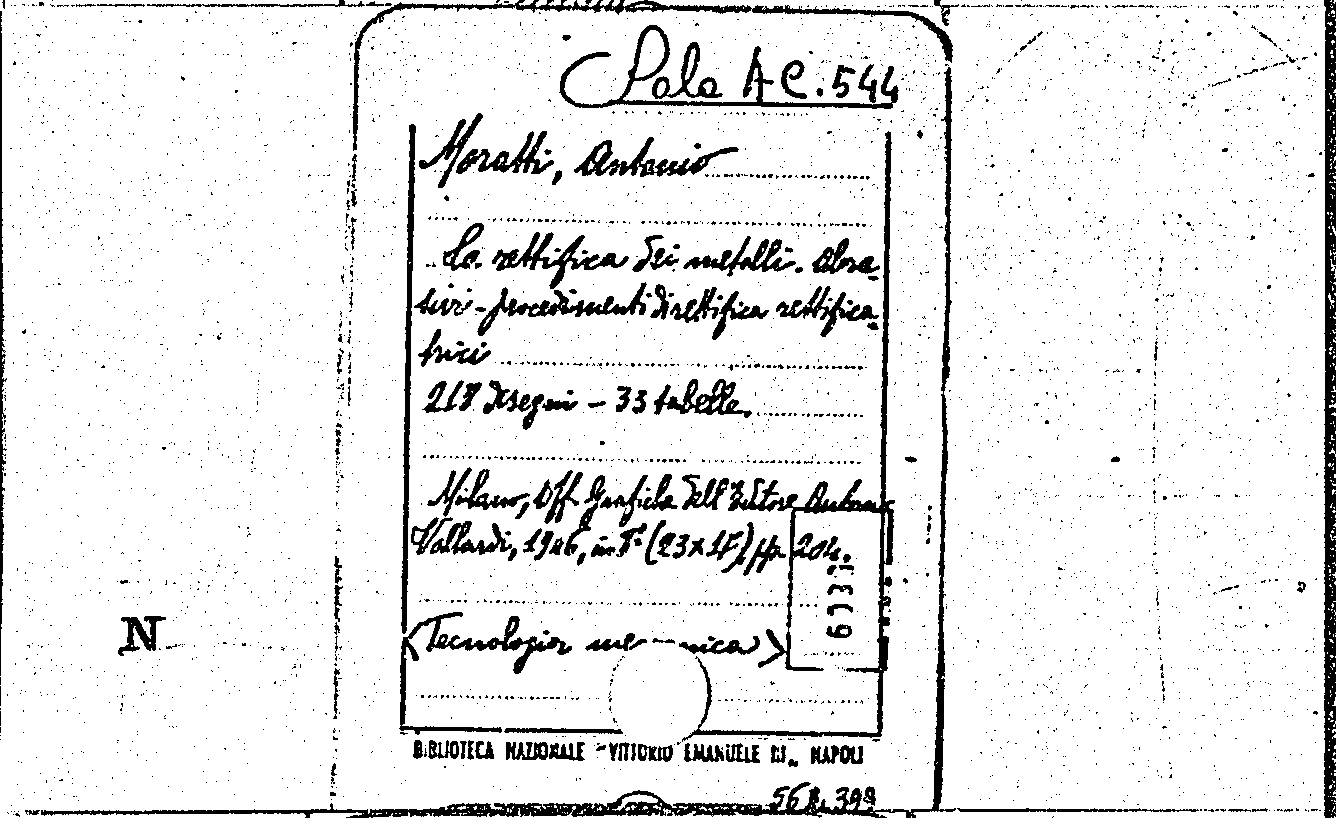 Sala A C. 544
Moratti, Antonio
La rettifica dei metalli. Abra-
sivi - procedimenti di rettifica rettifica-
trici
218 disegni - 33 tabelle.
Milano, Off. Grafiche dell'Editore Antonio
Vallardi, 1946, in 8° (23x17) pp. 204.
6733
(Tecnologia me nica)
N
BIBLIOTECA NAZIONALE "VITTORIO EMANUELE III„ NAPOLI